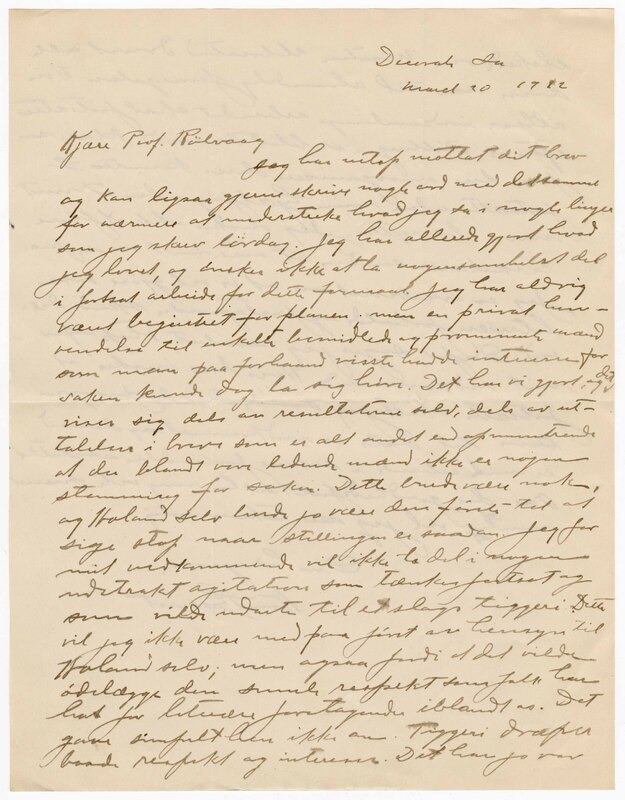 Decorah Ia
March 20 1912
Kjære Prof. Rölvaag
Jeg har netop mottat dit brev
og kan ligsaa gjerne skrive nogle ord med detsamme
for nærmere at understreke hvad jeg sa i nogle linjer
som jeg skrev lördag. Jeg har allerede gjort hvad
jeg lovet, og önsker ikke at ta nogensomhelst del
i fortsat arbeide for dette formaal. Jeg har aldrig
været begeistret for planen; men en privat hen-
vendelse til enkelte bemidlede og prominente mænd
som man paa forhaand visste hadde interesse for
saken kunde dog la sig höre. Det har vi gjort, og det
viser sig dels av resultaterne selv, dels av ut-
talelser i breve som er alt andet end opmuntrende
at der blandt vore ledende mænd ikke er nogen
stemning for saken. Dette burde være nok,
og Woland selv burde jo være den förste til at
sige stop naar stillingen er saadan. Jeg for
mit vedkommende vil ikke ta del i nogen
utstrakt agitation som tænkes fortsat og
som vilde utarte til et slags tiggeri. Dette
vil jeg ikke være med paa först av hensyn til
Woland selv; men ogsaa fordi at det vilde
ödelægge den sunde respekt som folk har
hat for literære foretagender iblandt os. Det
gaar simpelthen ikke an. Tiggeri dræper
baade respekt og interesse. Det har jo vær